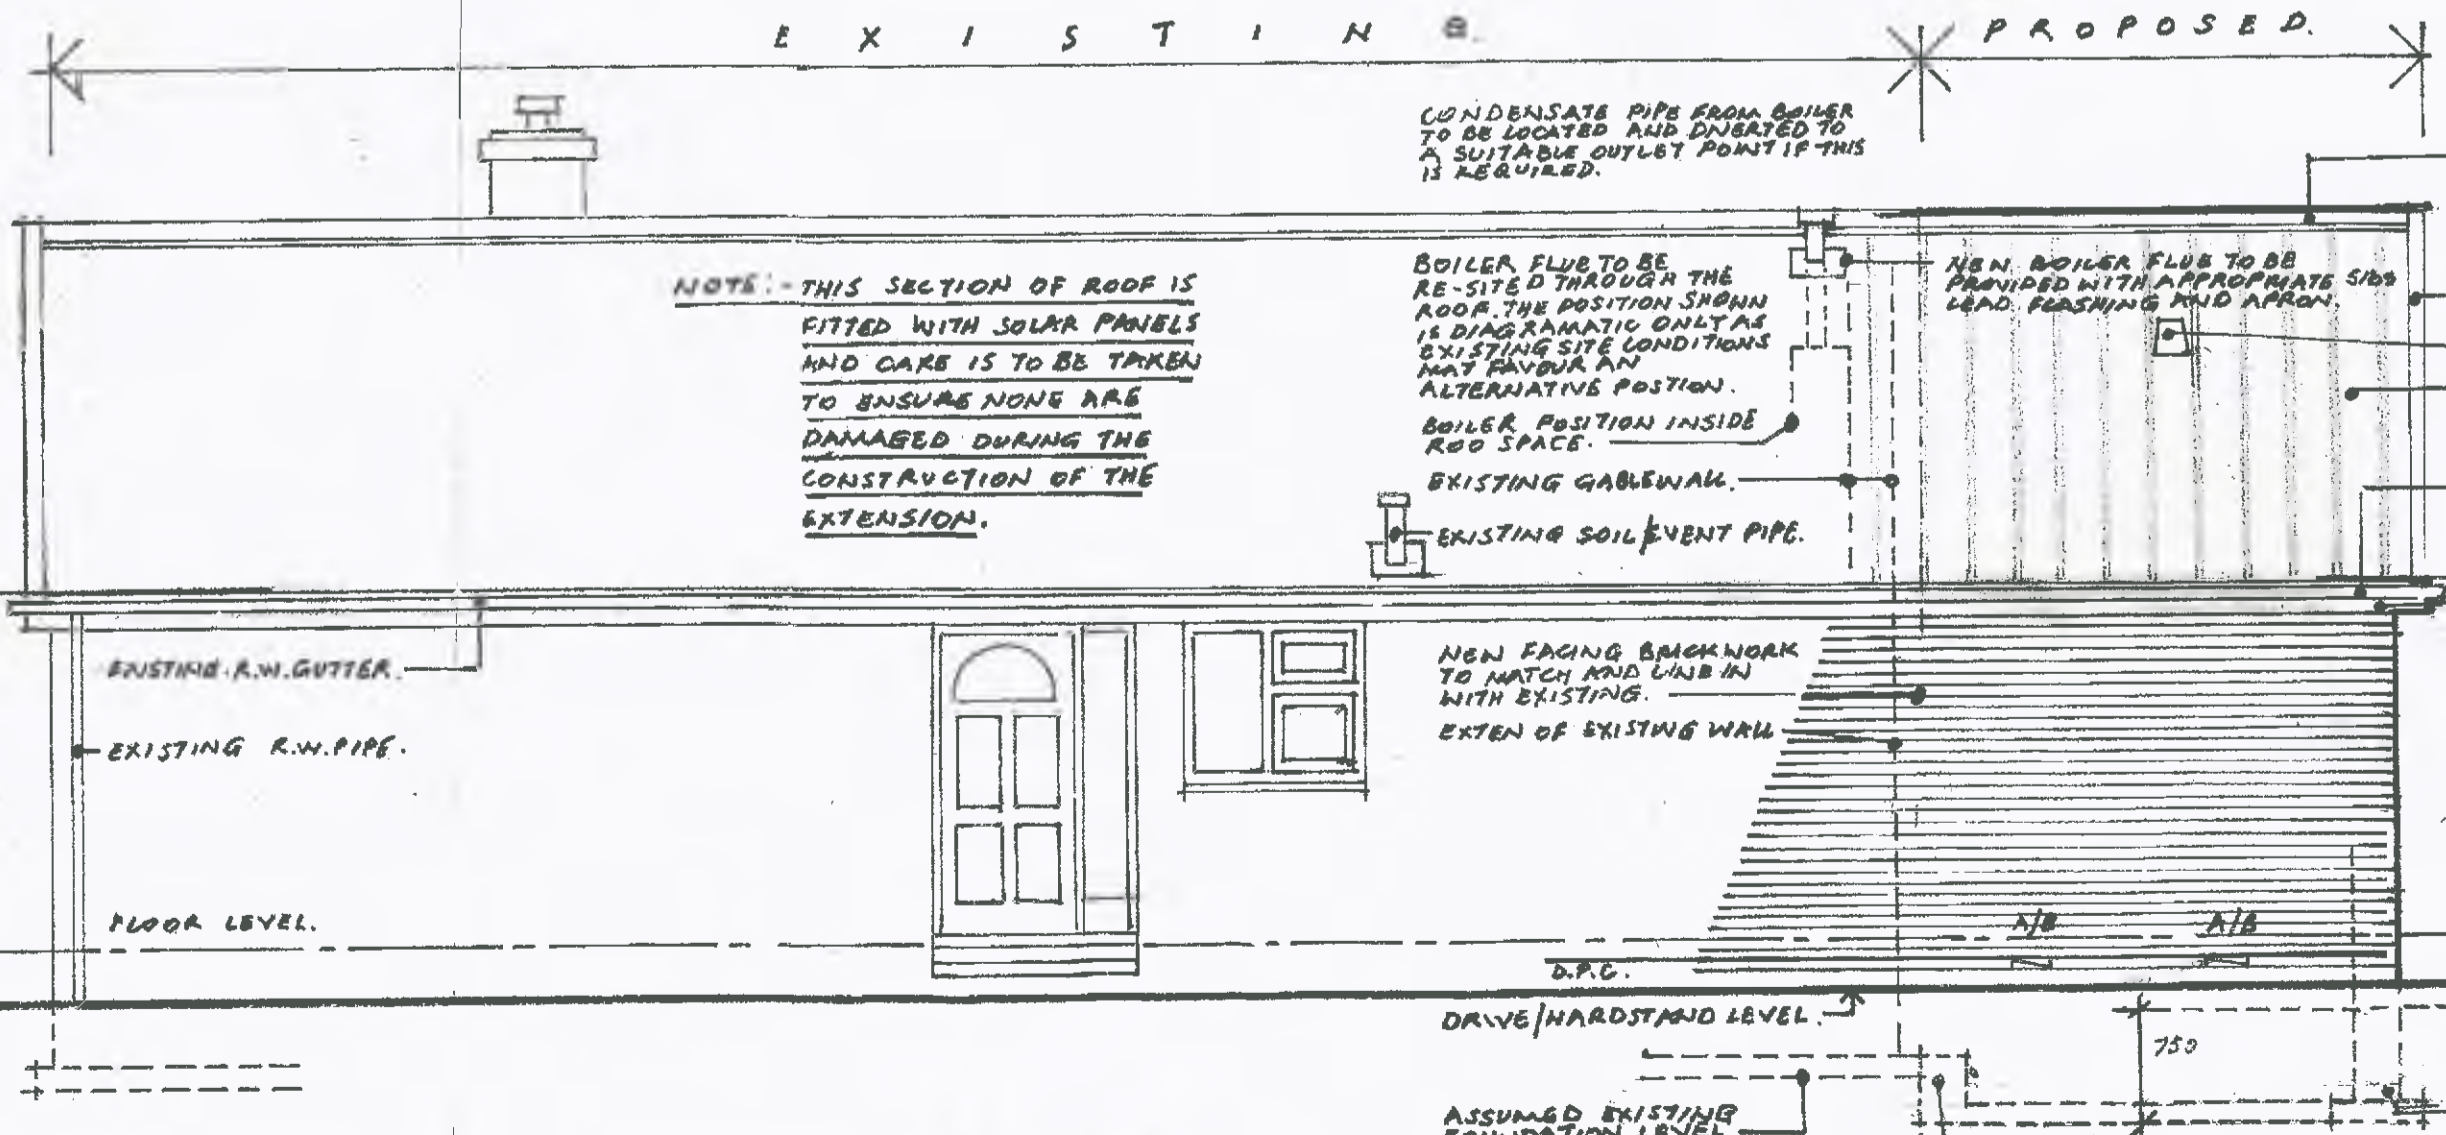 EXISTING.
PROPOSED.
CONDENSATE PIPE FROM BOILER
TO BE LOCATED AND DIVERTED TO
A SUITABLE OUTLET POINT IF THIS
IS REQUIRED.
NOTE:- THIS SECTION OF ROOF IS
FITTED WITH SOLAR PANELS
AND CARE IS TO BE TAKEN
TO ENSURE NONE ARE
DAMAGED DURING THE
CONSTRUCTION OF THE
EXTENSION.
BOILER FLUE TO BE
RE-SITED THROUGH THE
ROOF. THE POSITION SHOWN
IS DIAGRAMATIC ONLY AS
EXISTING SITE CONDITIONS
MAY FAVOUR AN
ALTERNATIVE POSTION.
BOILER POSITION INSIDE
ROO SPACE.
EXISTING GABLEWALL.
EXISTING SOIL/EVENT PIPE.
NEW BOILER FLUE TO BE
PROVIDED WITH APPROPRIATE SIDE
LEAD FLASHING AND APRON.
EXISTING.R.W.GUTTER.
EXISTING R.W.PIPE.
NEW FACING BRICKWORK
TO MATCH AND LINE IN
WITH EXISTING.
EXTEN OF EXISTING WALL
FLOOR LEVEL.
A/B
A/B
D.P.C.
DRIVE/HARDSTAND LEVEL.
750
ASSUMED EXISTING
FOUNDATION LEVEL